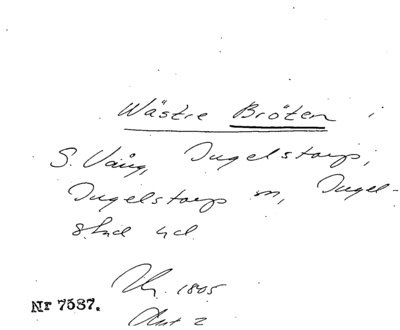 Wästre Bröten i
S. Vång, Ingelstorp,
Ingelstorps sn, Ingel-
stad hd
1805
Nr 7587.
Akt 2